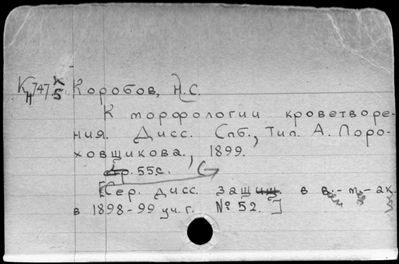 К 747 X/5 Коробов, Н.С.
К морфологии кроветворе-
ния. Дисс. Спб., Тип. А. Поро-
ховщикова, 1899.
55с.
[Сер. дисс. защищ. в в.-м. ак.
в 1898-99 уч. г. № 52.]